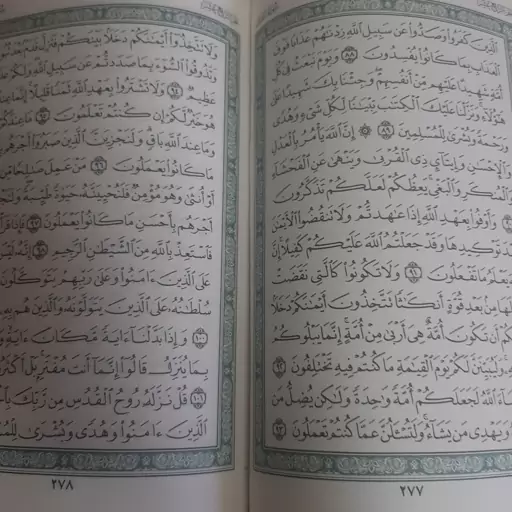 ٱلَّذِينَ كَفَرُوا۟ وَصَدُّوا۟ عَن سَبِيلِ ٱللَّهِ زِدْنَٰهُمْ عَذَابًا فَوْقَ
ٱلْعَذَابِ بِمَا كَانُوا۟ يُفْسِدُونَ ٨٨ وَيَوْمَ نَبْعَثُ فِى كُلِّ
أُمَّةٍ شَهِيدًا عَلَيْهِم مِّنْ أَنفُسِهِمْ وَجِئْنَا بِكَ شَهِيدًا عَلَىٰ
هَٰٓؤُلَآءِ وَنَزَّلْنَا عَلَيْكَ ٱلْكِتَٰبَ تِبْيَٰنًا لِّكُلِّ شَىْءٍ وَهُدًى
وَرَحْمَةً وَبُشْرَىٰ لِلْمُسْلِمِينَ ٨٩ ۞ إِنَّ ٱللَّهَ يَأْمُرُ بِٱلْعَدْلِ
وَٱلْإِحْسَٰنِ وَإِيتَآئِ ذِى ٱلْقُرْبَىٰ وَيَنْهَىٰ عَنِ ٱلْفَحْشَآءِ
وَٱلْمُنكَرِ وَٱلْبَغْىِ يَعِظُكُمْ لَعَلَّكُمْ تَذَكَّرُونَ
وَأَوْفُوا۟ بِعَهْدِ ٱللَّهِ إِذَا عَٰهَدتُّمْ وَلَا تَنقُضُوا۟ ٱلْأَيْمَٰنَ
تَوْكِيدِهَا وَقَدْ جَعَلْتُمُ ٱللَّهَ عَلَيْكُمْ كَفِيلًا إِنَّ
يَعْلَمُ مَا تَفْعَلُونَ ٩١ وَلَا تَكُونُوا۟ كَٱلَّتِى نَقَضَتْ
مِنۢ بَعْدِ قُوَّةٍ أَنكَٰثًا تَتَّخِذُونَ أَيْمَٰنَكُمْ دَخَلًۢا
أَن تَكُونَ أُمَّةٌ هِىَ أَرْبَىٰ مِنْ أُمَّةٍ إِنَّمَا يَبْلُوكُمُ
وَلَيُبَيِّنَنَّ لَكُمْ يَوْمَ ٱلْقِيَٰمَةِ مَا كُنتُمْ فِيهِ تَخْتَلِفُونَ ٩٢
ٱللَّهُ لَجَعَلَكُمْ أُمَّةً وَٰحِدَةً وَلَٰكِن يُضِلُّ مَن
وَيَهْدِى مَن يَشَآءُ وَلَتُسْـَٔلُنَّ عَمَّا كُنتُمْ تَعْمَلُونَ ٩٣
٢٧٧
وَلَا تَتَّخِذُوٓا۟ أَيْمَٰنَكُمْ دَخَلًۢا بَيْنَكُمْ فَتَزِلَّ قَدَمٌۢ
وَتَذُوقُوا۟ ٱلسُّوٓءَ بِمَا صَدَدتُّمْ عَن سَبِيلِ ٱللَّهِ وَلَكُمْ
عَظِيمٌ ٩٤ وَلَا تَشْتَرُوا۟ بِعَهْدِ ٱللَّهِ ثَمَنًا قَلِيلًا إِنَّمَا
هُوَ خَيْرٌ لَّكُمْ إِن كُنتُمْ تَعْلَمُونَ ٩٥ مَا عِندَكُمْ
وَمَا عِندَ ٱللَّهِ بَاقٍ وَلَنَجْزِيَنَّ ٱلَّذِينَ صَبَرُوٓا۟ أَجْرَهُم
مَا كَانُوا۟ يَعْمَلُونَ ٩٦ مَنْ عَمِلَ صَٰلِحًا مِّن
أَوْ أُنثَىٰ وَهُوَ مُؤْمِنٌ فَلَنُحْيِيَنَّهُۥ حَيَوٰةً طَيِّبَةً
أَجْرَهُم بِأَحْسَنِ مَا كَانُوا۟ يَعْمَلُونَ ٩٧ فَإِذَا
فَٱسْتَعِذْ بِٱللَّهِ مِنَ ٱلشَّيْطَٰنِ ٱلرَّجِيمِ ٩٨ إِنَّهُۥ لَيْسَ
عَلَى ٱلَّذِينَ ءَامَنُوا۟ وَعَلَىٰ رَبِّهِمْ يَتَوَكَّلُونَ
سُلْطَٰنُهُۥ عَلَى ٱلَّذِينَ يَتَوَلَّوْنَهُۥ وَٱلَّذِينَ هُم بِهِۦ
١٠٠ وَإِذَا بَدَّلْنَآ ءَايَةً مَّكَانَ ءَايَةٍ
بِمَا يُنَزِّلُ قَالُوٓا۟ إِنَّمَآ أَنتَ مُفْتَرٍۭ بَلْ
١٠١ قُلْ نَزَّلَهُۥ رُوحُ ٱلْقُدُسِ مِن رَّبِّكَ
ٱلَّذِينَ ءَامَنُوا۟ وَهُدًى وَبُشْرَىٰ
٢٧٨